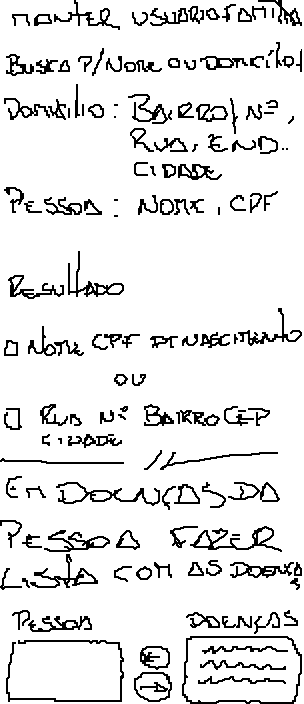 MANTER USUARIO FAMILIA
BUSCA P/ NOME OU DOMICÍLIO
DOMICÍLIO : BAIRRO, Nº,
RUA, END..
CIDADE
PESSOA : NOME, CPF
RESULTADO
NOME CPF DT NASCIMENTO
OU
RUA Nº BAIRRO CEP
CIDADE
EM DOENÇAS DA
PESSOA FAZER
LISTA COM AS DOENÇAS
PESSOA DOENÇAS